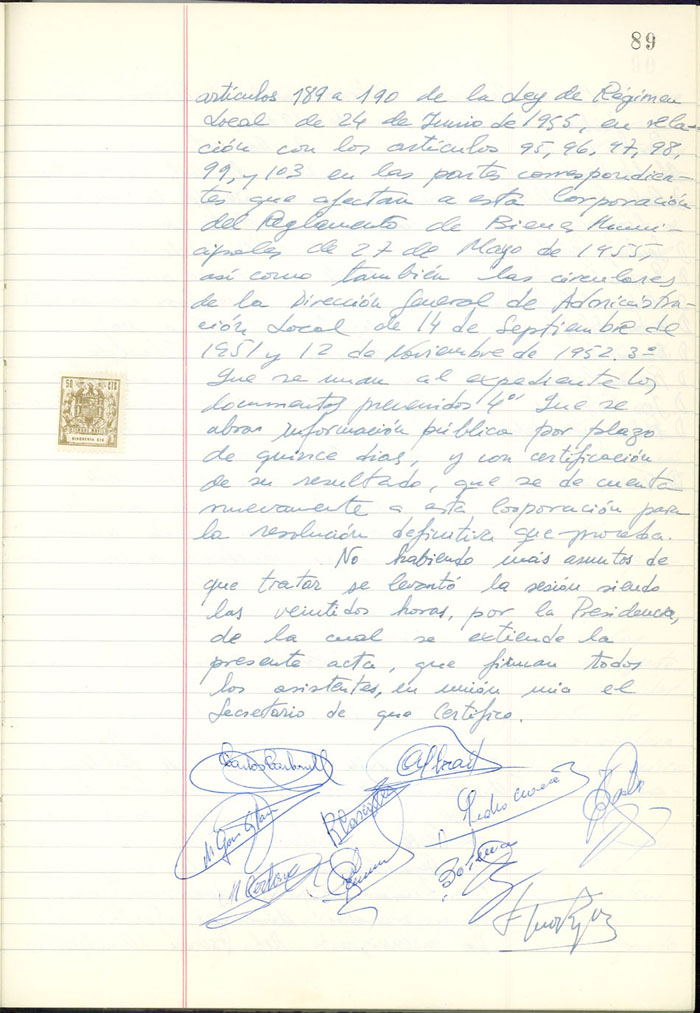 89
artículos 189 a 190 de la Ley de Régimen
Local de 24 de Junio de 1955, en rela-
ción con los artículos 95, 96, 97, 98,
99, y 103 en las partes correspondien-
tes que afectan a esta Corporación
del Reglamento de Bienes Muni-
cipales de 27 de Mayo de 1955,
así como también las circulares
de la Dirección General de Administra-
ción Local de 14 de Septiembre de
1951 y 12 de Noviembre de 1952. 3º
Que se unan al expediente los
documentos prevenidos 4º Que se
abra información pública por plazo
de quince dias, y con certificación
de su resultado, que se de cuenta
nuevamente a esta Corporación para
la resolución definitiva que proceda.
No habiendo más asuntos de
que tratar se levantó la sesión siendo
las veintidos horas, por la Presidencia,
de la cual se extiende la
presente acta, que firman todos
los asistentes, en unión mia el
Secretario de que Certifico.
50 CTS
Carlos Carbonell